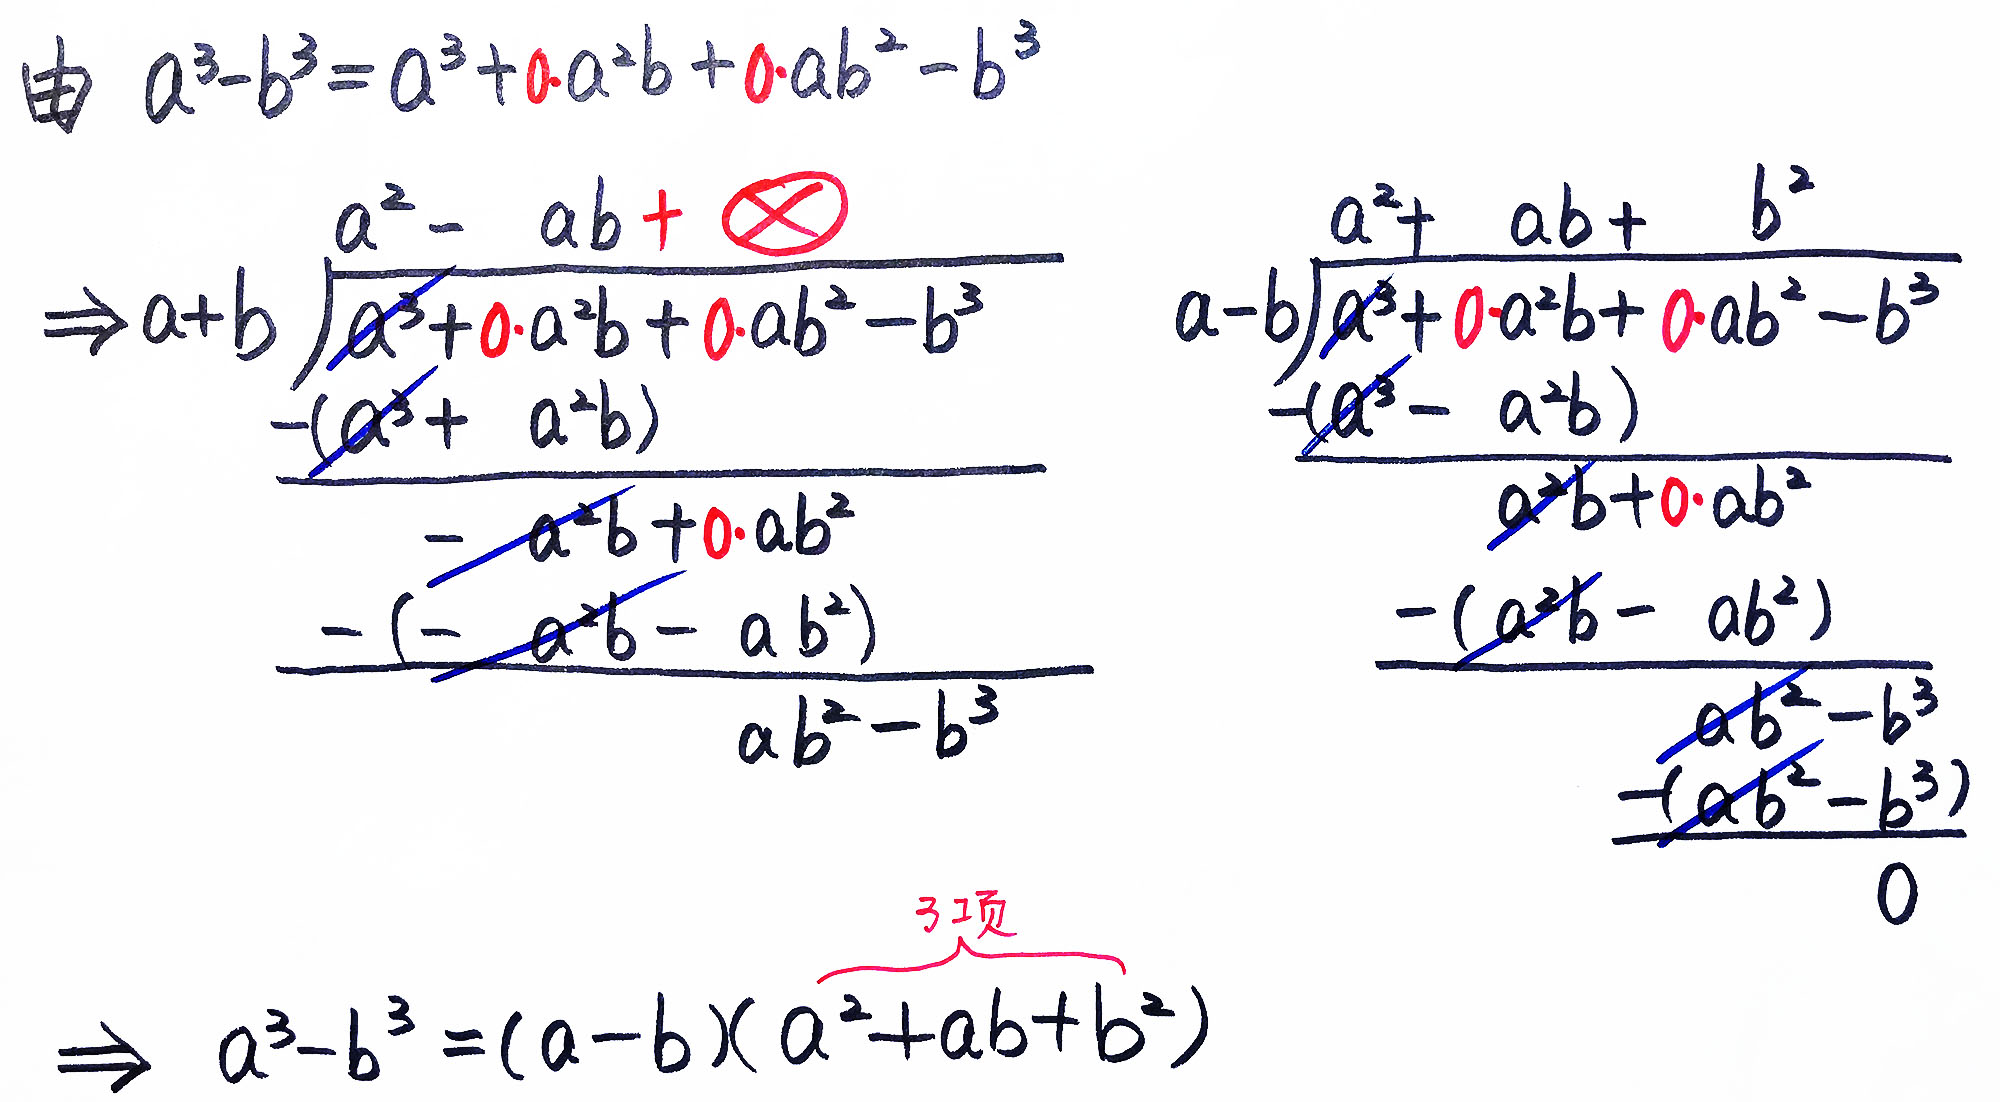 由 a³-b³=a³+0·a²b+0·ab²-b³
a²- ab+ ⊗
⇒a+b)a³+0·a²b+0·ab²-b³
-(a³+ a²b)
- a²b+0·ab²
-(- a²b- ab²)
ab²-b³
a²+ ab+ b²
a-b)a³+0·a²b+0·ab²-b³
-(a³- a²b)
a²b+0·ab²
-(a²b- ab²)
ab²-b³
-(ab²-b³)
0
3项
⇒ a³-b³=(a-b)(a²+ab+b²)